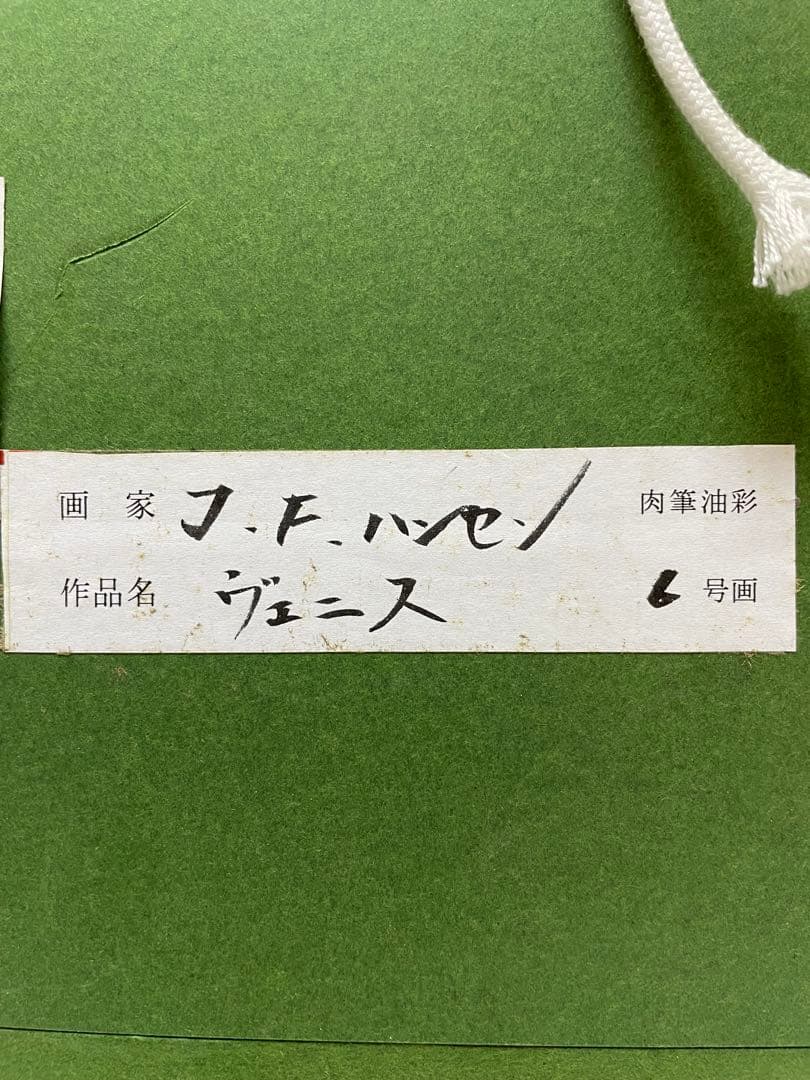 画 家 J.F.ハンセン 肉筆油彩
作品名 ヴェニス 6 号画